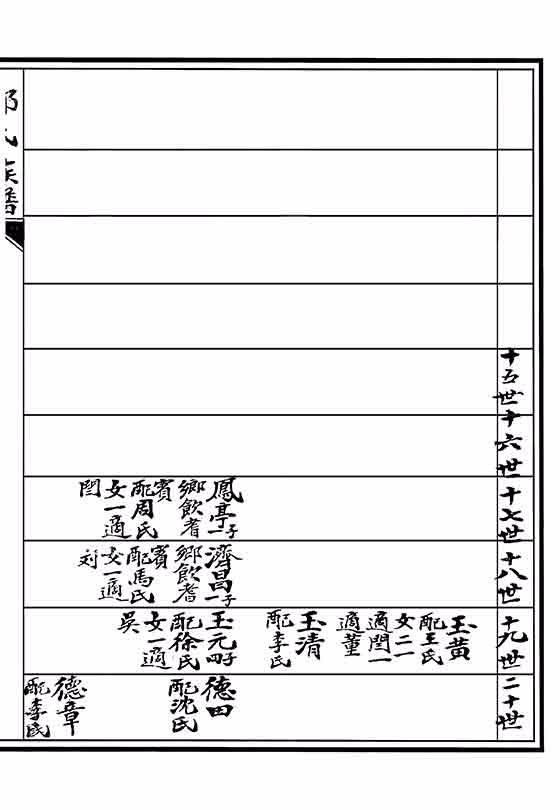 十五世
十六世
十七世
十八世
十九世
二十世
鳳亭一子
鄉飲耆
賓
配周氏
女一適
閏
濟昌一子
鄉飲耆
賓
配馬氏
女一適
刘
玉黄
配王氏
女二一
適閏一
適董
玉清
配李氏
玉元四子
配徐氏
女一適
吳
德田
配沈氏
德章
配李氏
氏族譜